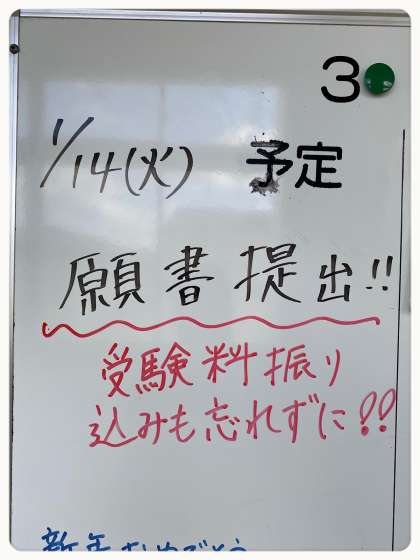 3
1/14(火) 予定
願書提出!!
受験料振り
込みも忘れずに!!